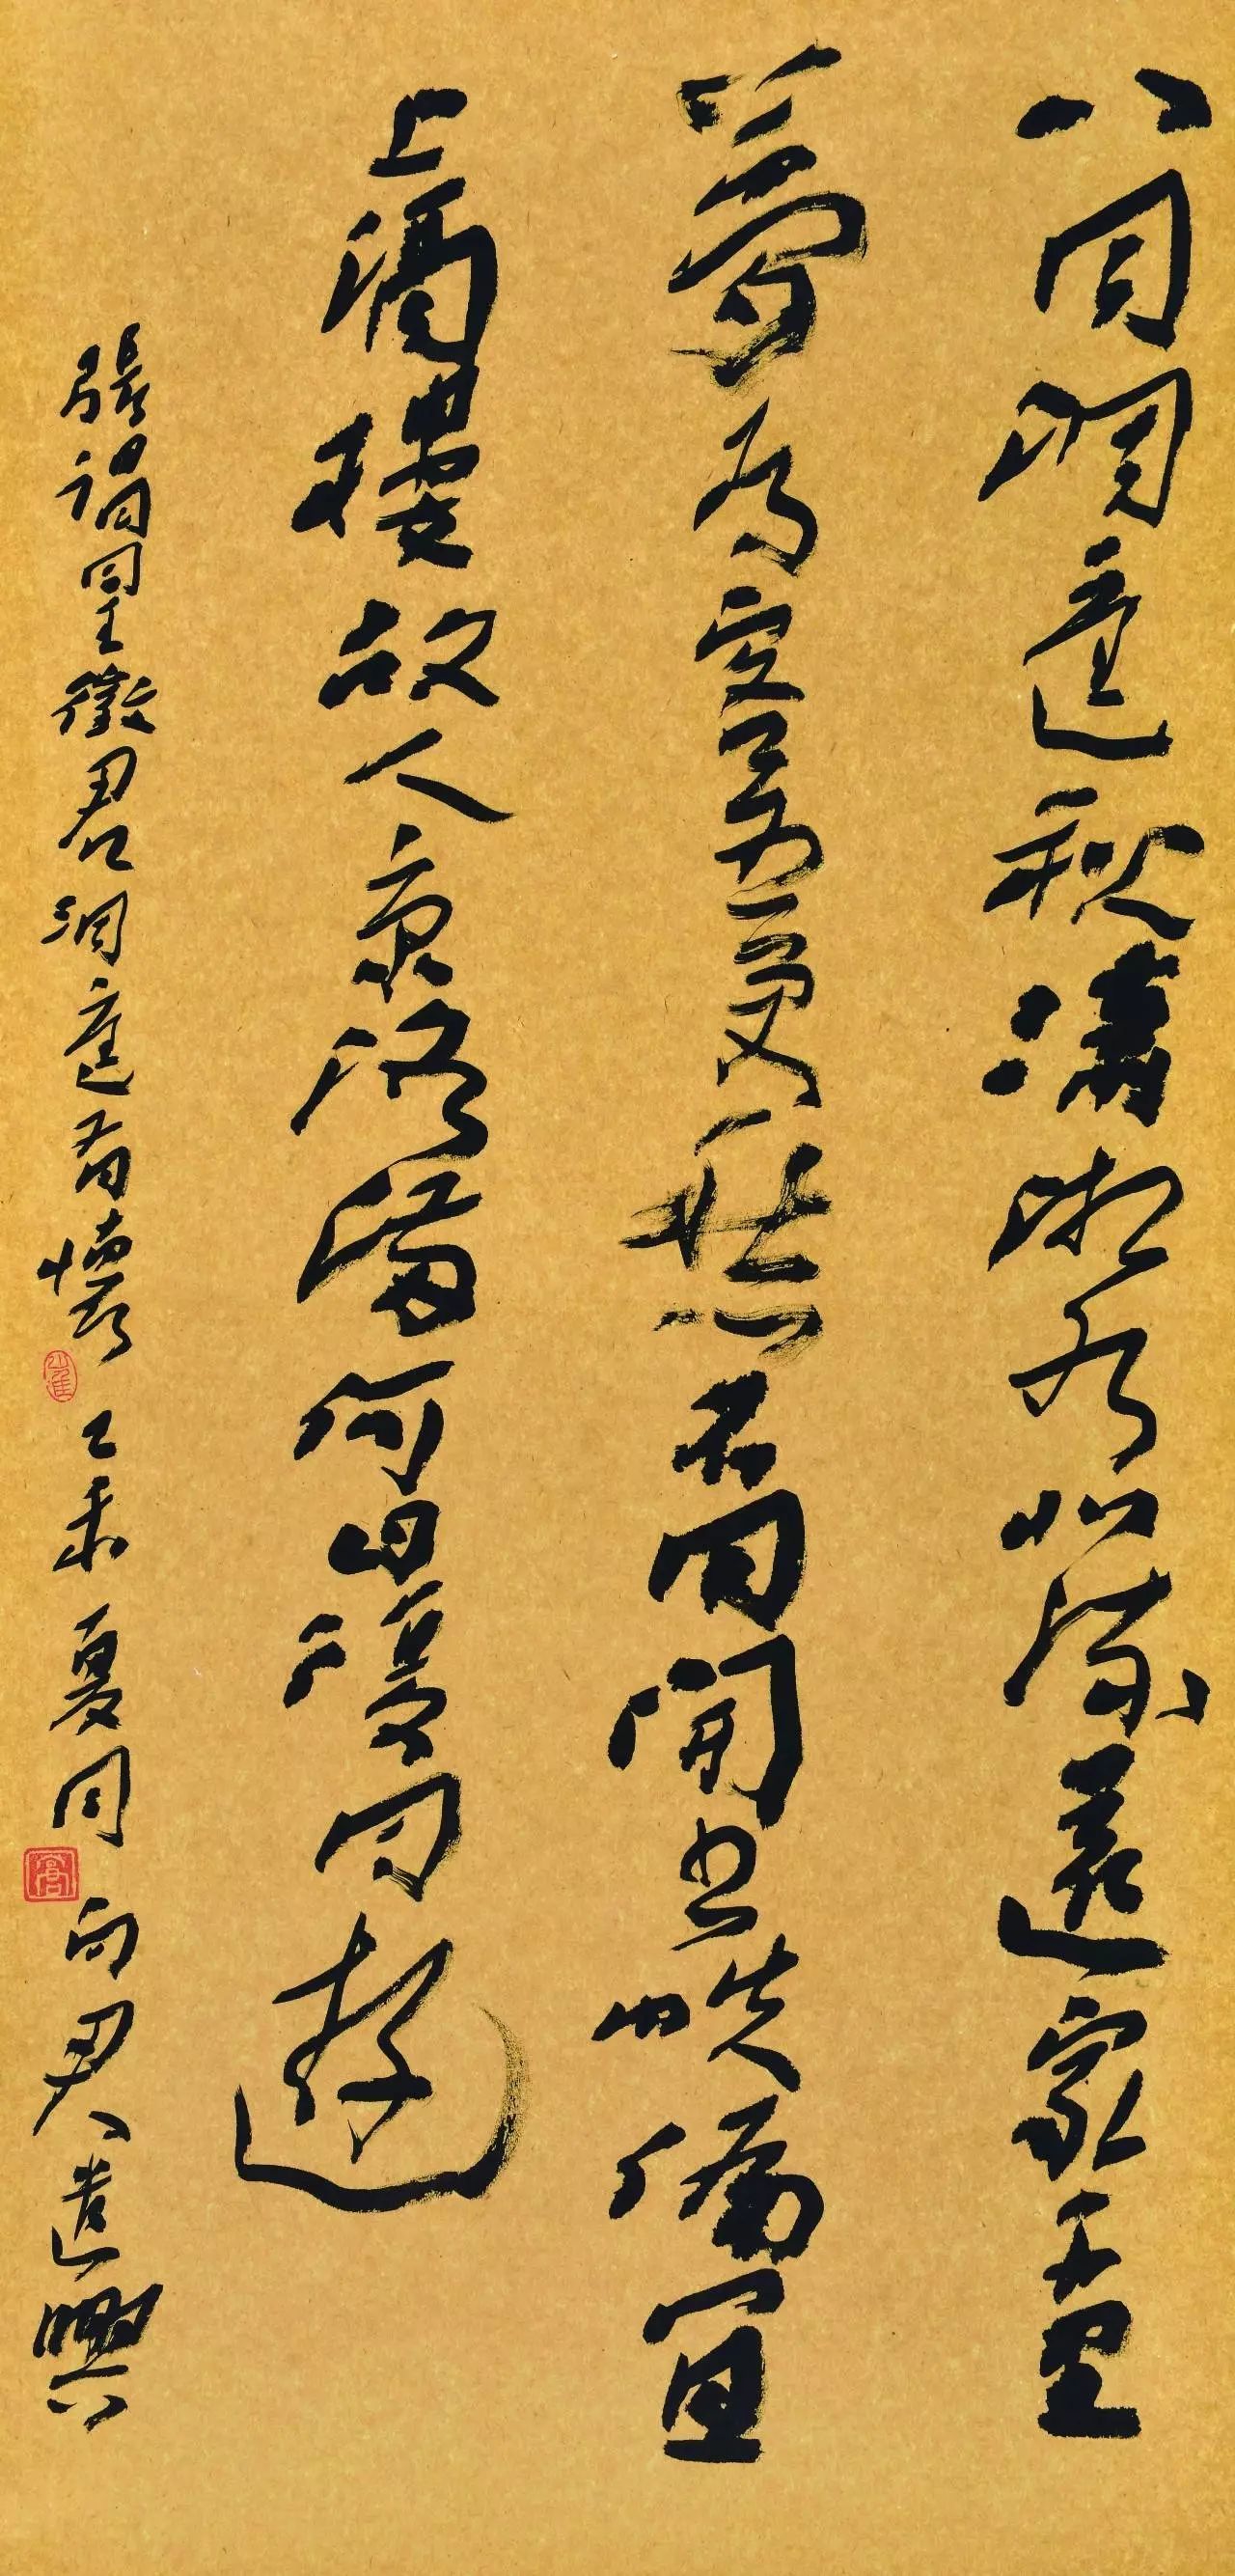 八月洞庭秋瀟湘水北流還家万里
夢為客五更愁不用開書帙偏宜
上酒樓故人京洛滿何日復同遊
張謂同王徵君洞庭有懷 乙未夏月 向尹遣興